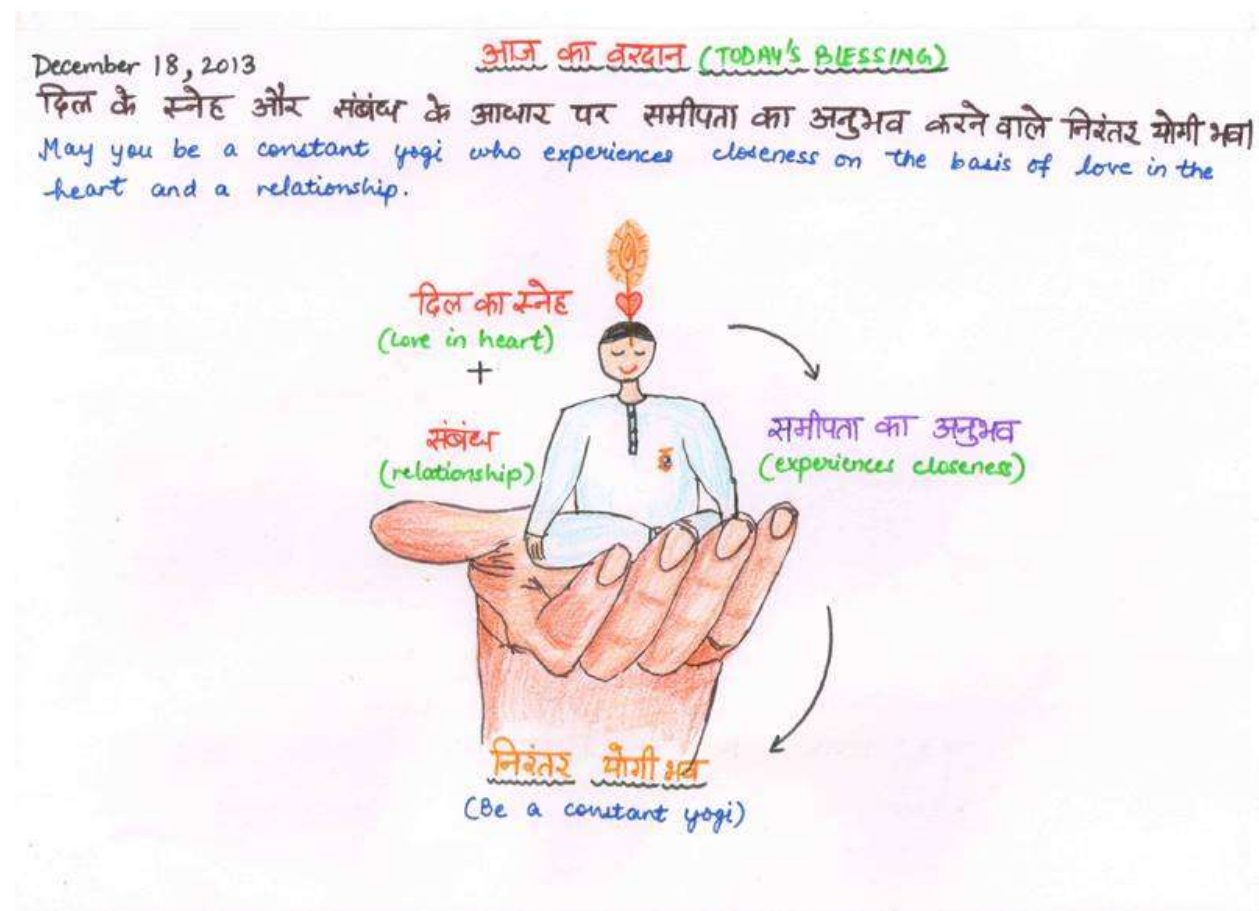 December 18, 2013
आज का वरदान (TODAY'S BLESSING)
दिल के स्नेह और संबंध के आधार पर समीपता का अनुभव करने वाले निरंतर योगी भव।
May you be a constant yogi who experiences closeness on the basis of love in the
heart and a relationship.
दिल का स्नेह
(Love in heart)
+
संबंध
(relationship)
समीपता का अनुभव
(experiences closeness)
निरंतर योगी भव
(Be a constant yogi)